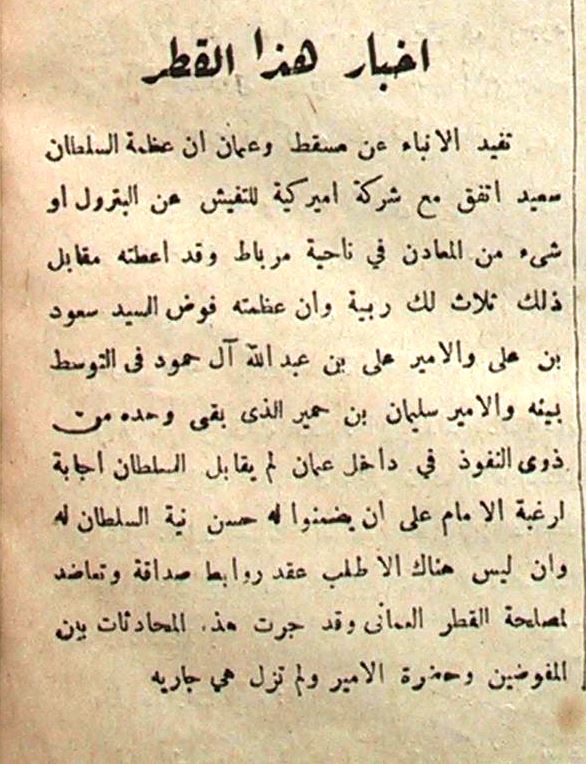 اخبار هذا القطر
تفيد الانباء عن مسقط وعمان ان عظمة السلطان
سعيد اتفق مع شركة اميركية للتفيش عن البترول او
شىء من المعادن في ناحية مرباط وقد اعطته مقابل
ذلك ثلاث لك ربية وان عظمته فوض السيد سعود
بن على والامير على بن عبد الله آل حمود فى التوسط
بينه والامير سليمان بن حمير الذى بقى وحده من
ذوى النفوذ في داخل عمان لم يقابل السلطان اجابة
ارغبة الامام على ان يضمنوا له حسن نية السلطان له
وان ليس هناك الا طلب عقد روابط صداقة وتعاضد
لمصلحة القطر العمانى وقد جرت هذه المحادثات بين
المفوضين وحضرة الامير ولم تزل هي جاريه